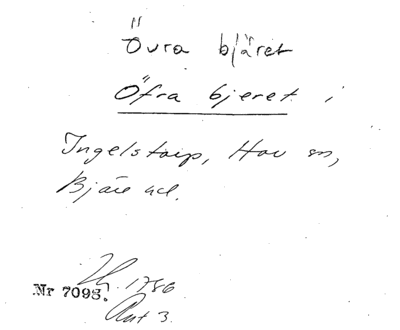 Övra bjäret
Öfra bjeret i
Ingelstorp, Hov sn,
Bjäre hd.
1786
Nr 7098.
Akt 3.